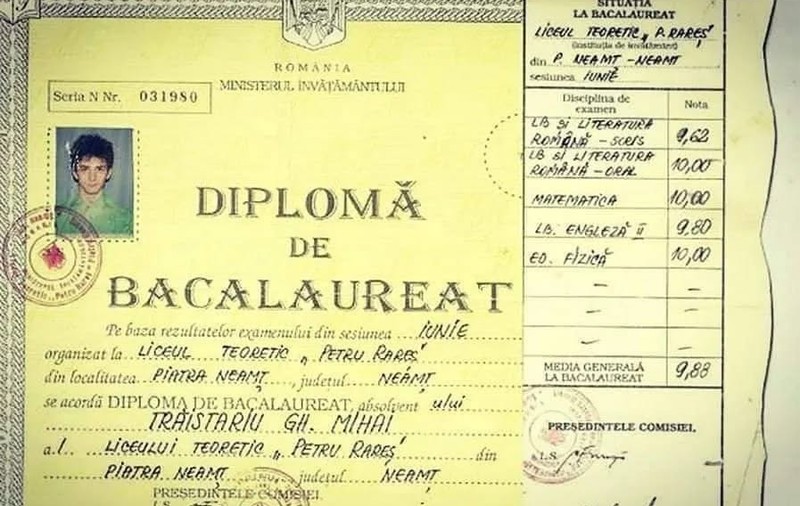 ROMÂNIA
MINISTERUL ÎNVĂŢĂMÂNTULUI
Seria N Nr. 031980
DIPLOMĂ
DE
BACALAUREAT
Pe baza rezultatelor examenului din sesiunea IUNIE
organizat la LICEUL TEORETIC „PETRU RAREŞ"
din localitatea PIATRA NEAMŢ, judeţul NEAMŢ
se acordă DIPLOMA DE BACALAUREAT, absolvent ului
TRAISTARIU GH. MIHAI
a.l. LICEULUI TEORETIC „PETRU RAREŞ" din
PIATRA NEAMŢ judeţul NEAMŢ
PREŞEDINTELE COMISIEI,
L.S.
SITUAŢIA
LA BACALAUREAT
LICEUL TEORETIC „P. RAREŞ"
(instituţia de învăţământ)
din P. NEAMŢ - NEAMŢ
sesiunea IUNIE
Disciplina de examen Nota
LB SI LITERATURA
ROMÂNĂ - SCRIS 9,62
LB SI LITERATURA
ROMÂNĂ - ORAL 10,00
MATEMATICA 10,00
LB. ENGLEZĂ II 9,80
ED. FIZICĂ 10,00
–
–
–
MEDIA GENERALĂ
LA BACALAUREAT 9,88
PREŞEDINTELE COMISIEI,
L.S.